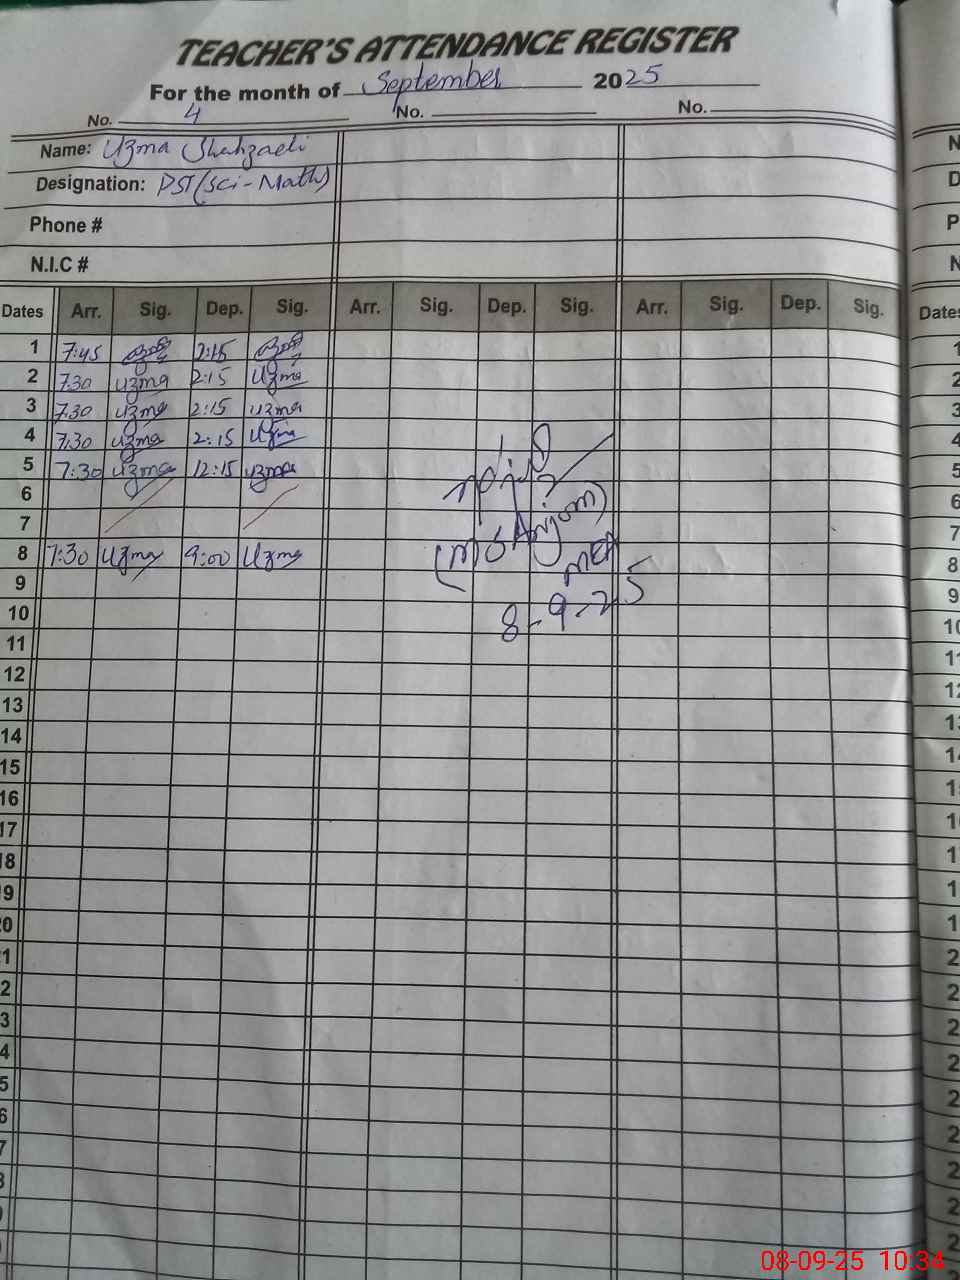 TEACHER'S ATTENDANCE REGISTER
For the month of September 2025
No. 4 No. No.
Name: Uzma Shahzadi
Designation: PST (Sci-Math)
Phone #
N.I.C #
Dates Arr. Sig. Dep. Sig. Arr. Sig. Dep. Sig. Arr. Sig. Dep. Sig. Dates
1 7:45 2:15 1
2 7:30 Uzma 2:15 Uzma 2
3 7:30 Uzma 2:15 Uzma 3
4 7:30 Uzma 2:15 Uzma 4
5 7:30 Uzma 12:15 Uzma 5
6 6
7 7
8 7:30 Uzma 9:00 Uzma 8
(M S Anjom)
MEA
8-9-25
9 9
10 10
11 11
12 12
13 13
14 14
15
16
17
18
19
20
08-09-25 10:34